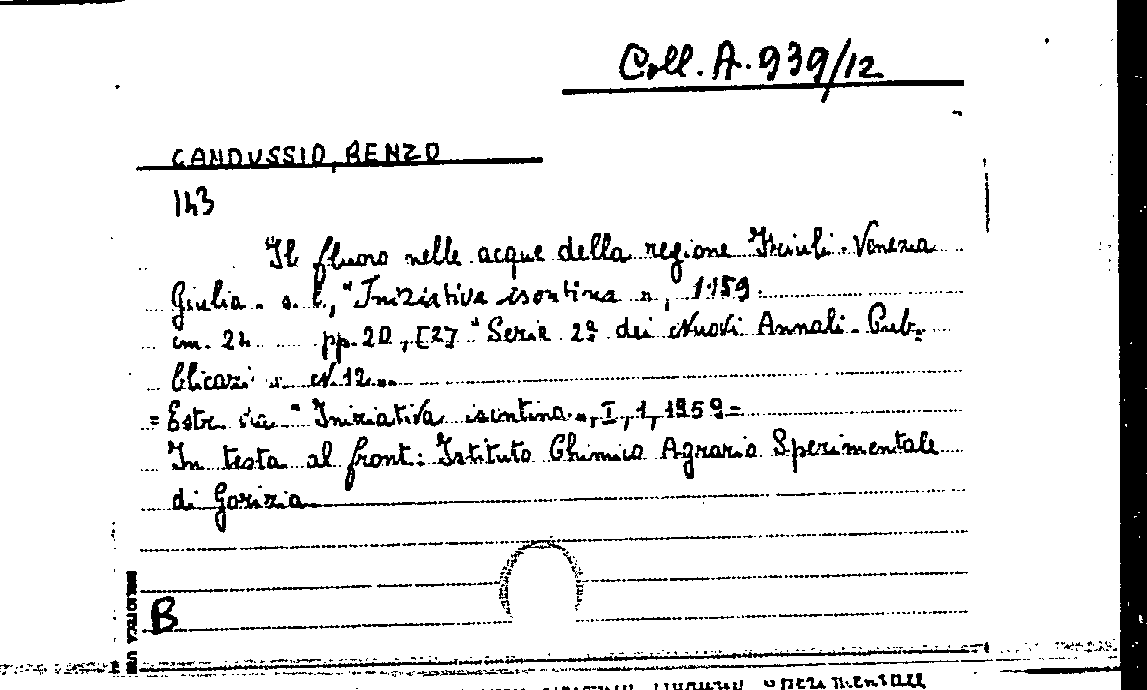 Coll. A. 939/12
CANDUSSIO, RENZO
143
"Il fluoro nelle acque della regione Friuli-Venezia
Giulia. s. l., "Iniziativa isontina", 1959.
cm. 24 pp. 20, [2] "Serie 2ª dei Nuovi Annali - Pub-
blicaz. N. 12...
= Estr. da "Iniziativa isontina", I, 1, 1959 =
In testa al front: Istituto Chimico Agrario Sperimentale
di Gorizia.
B
BIBLIOTECA